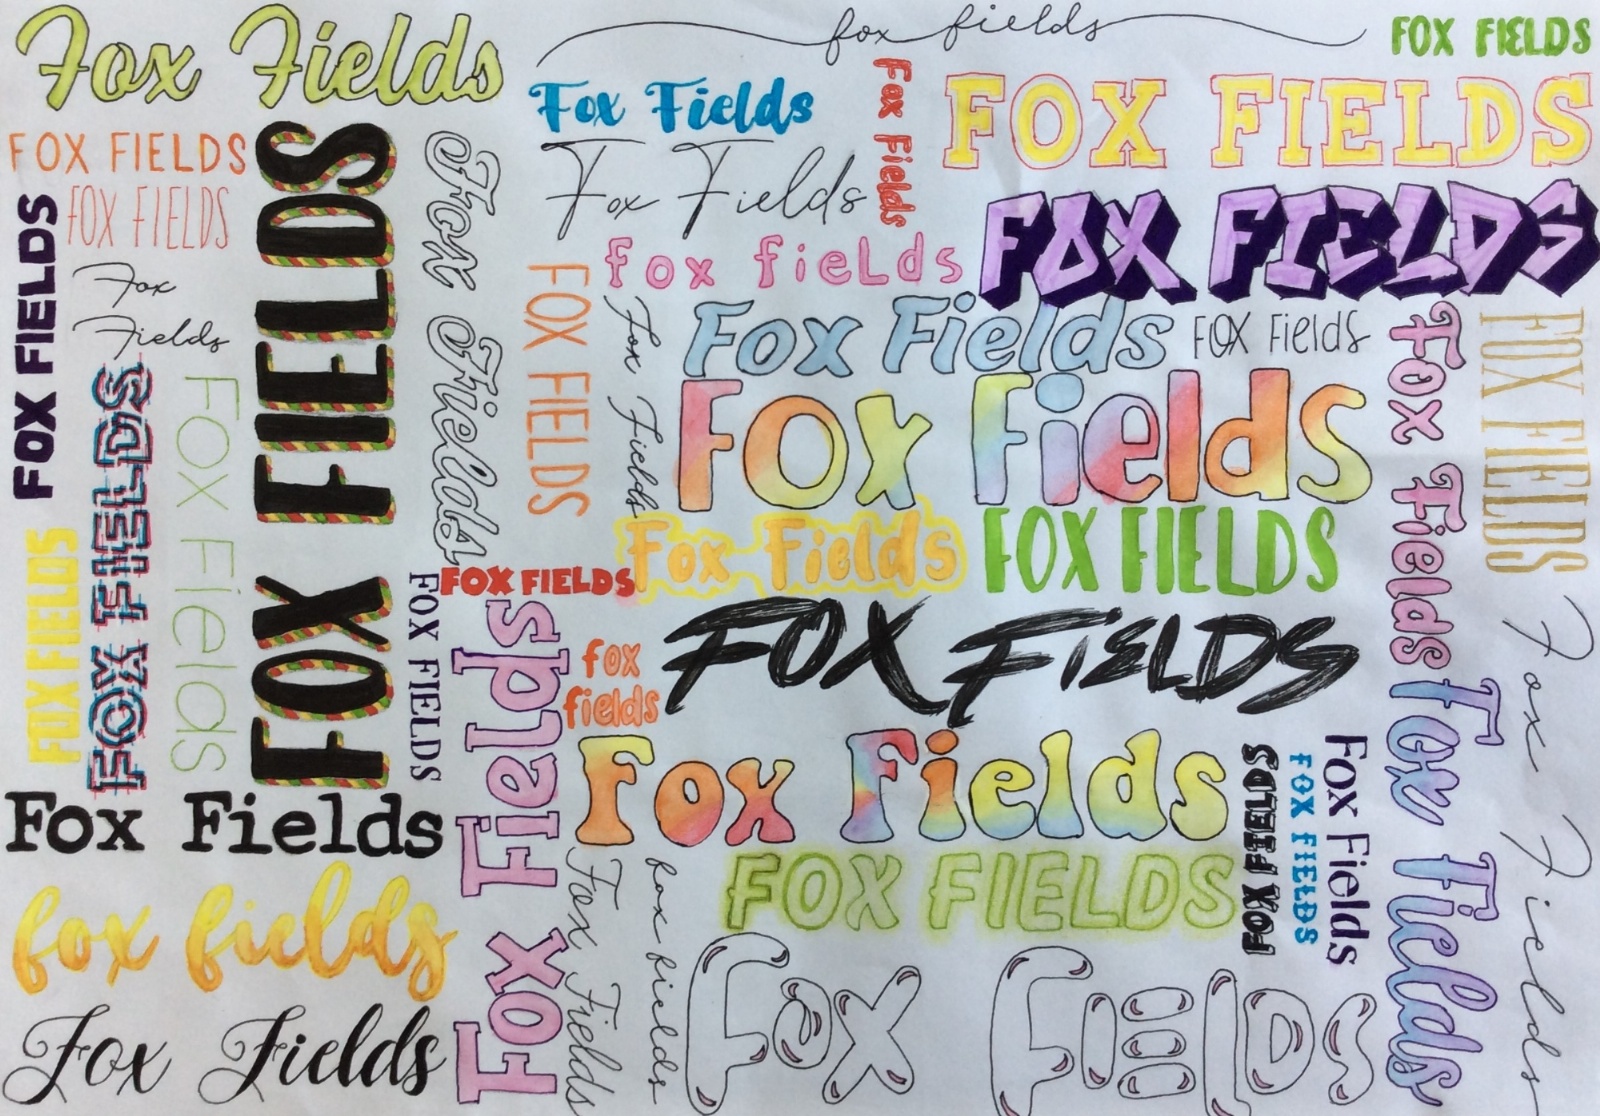 Fox Fields
fox fields
FOX FIELDS
Fox Fields
Fox Fields
FOX FIELDS
FOX FIELDS
FOX FIELDS
FOX FIELDS
Fox Fields
Fox Fields
FOX FIELDS
fox fieLds
FOX FIELDS
Fox
Fields
FOX FIELDS
Fox Fields
Fox Fields
FOX Fields
Fox Fields
FOX FIELDS
FOX FIELDS
Fox Fields
Fox Fields
FOX FIELDS
Fox Fields
FOX FIELDS
FOX FIELDS
FOX FIELDS
Fox Fields
fox
fields
FOX FiELDS
Fox Fields
Fox Fields
Fox Fields
Fox Fields
FOX FIELDS
FOX FIELDS
Fox Fields
fox fields
Fox Fields
fox fields
FOX FIELDS
Fox Fields
Fox FIELDS